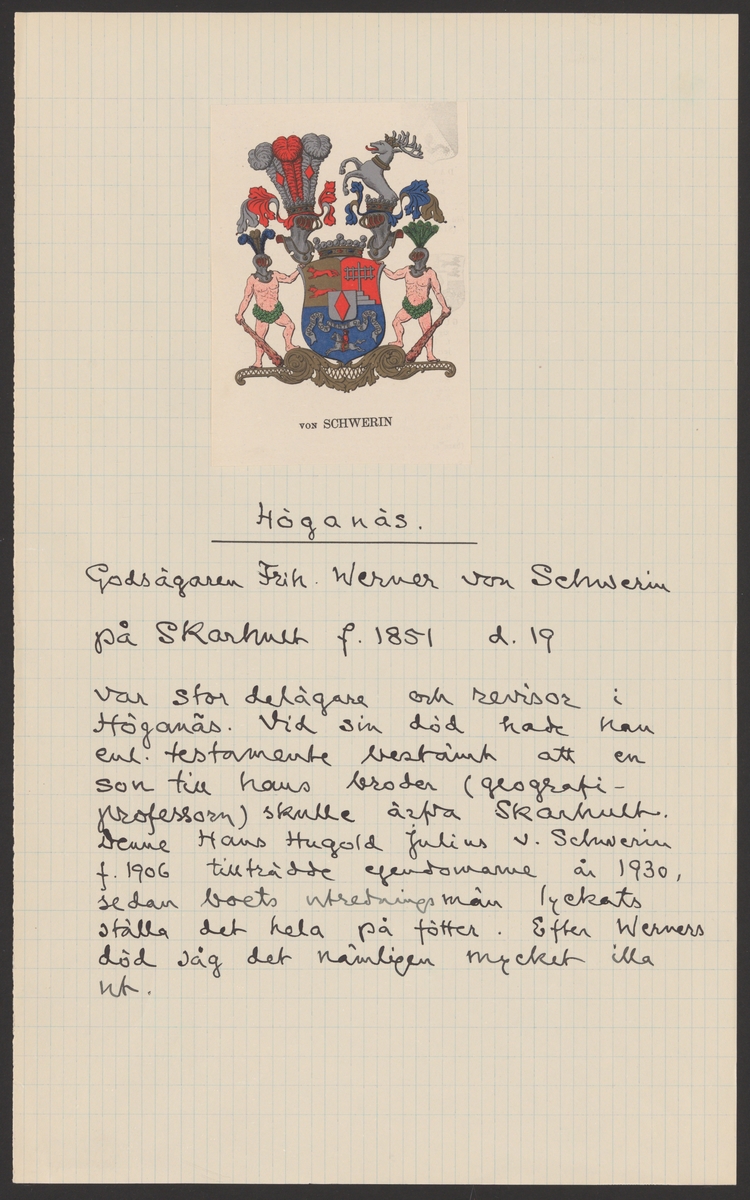 von SCHWERIN
Höganäs.
Godsägaren Frih. Werner von Schwerin
på Skarhult f. 1851 d. 19
var stor delägare och revisor i
Höganäs. Vid sin död hade han
enl. testamente bestämt att en
son till hans broder (geografi-
professorn) skulle ärfva Skarhult.
Denne Hans Hugold Julius v. Schwerin
f. 1906 tillträdde egendomarne år 1930,
sedan boets utredningsmän lyckats
ställa det hela på fötter. Efter Werners
död såg det nämligen mycket illa
ut.